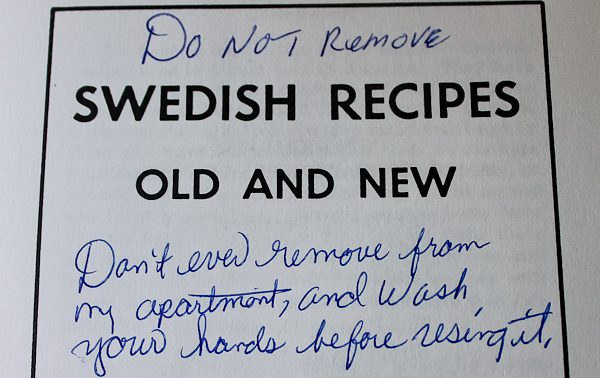 Do Not Remove
SWEDISH RECIPES
OLD AND NEW
Don't ever remove from
my apartment, and Wash
your hands before using it.